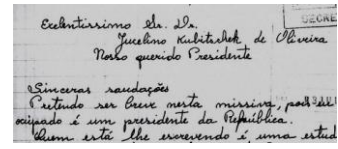 DECRE
Excelentissimo Sr. Dr.
Jucelino Kubitschek de Oliveira
Nosso querido Presidente
Sinceras saudações
Pretendo ser breve nesta missiva, pois
ocupado é um presidente da República.
Quem está lhe escrevendo é uma estud